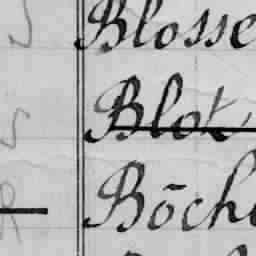 Blosse
Blot
Böch